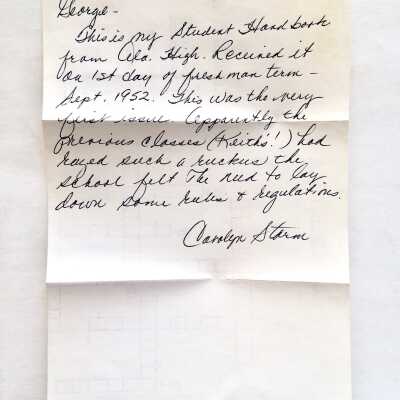 George -
This is my Student Hand book
from Ala. High. Received it
on 1st day of freshman term -
Sept. 1952. This was the very
first issue. Apparently the
previous classes (Keith's!) had
razed such a ruckus the
school felt the need to lay
down some rules & regulations.
Carolyn Storm